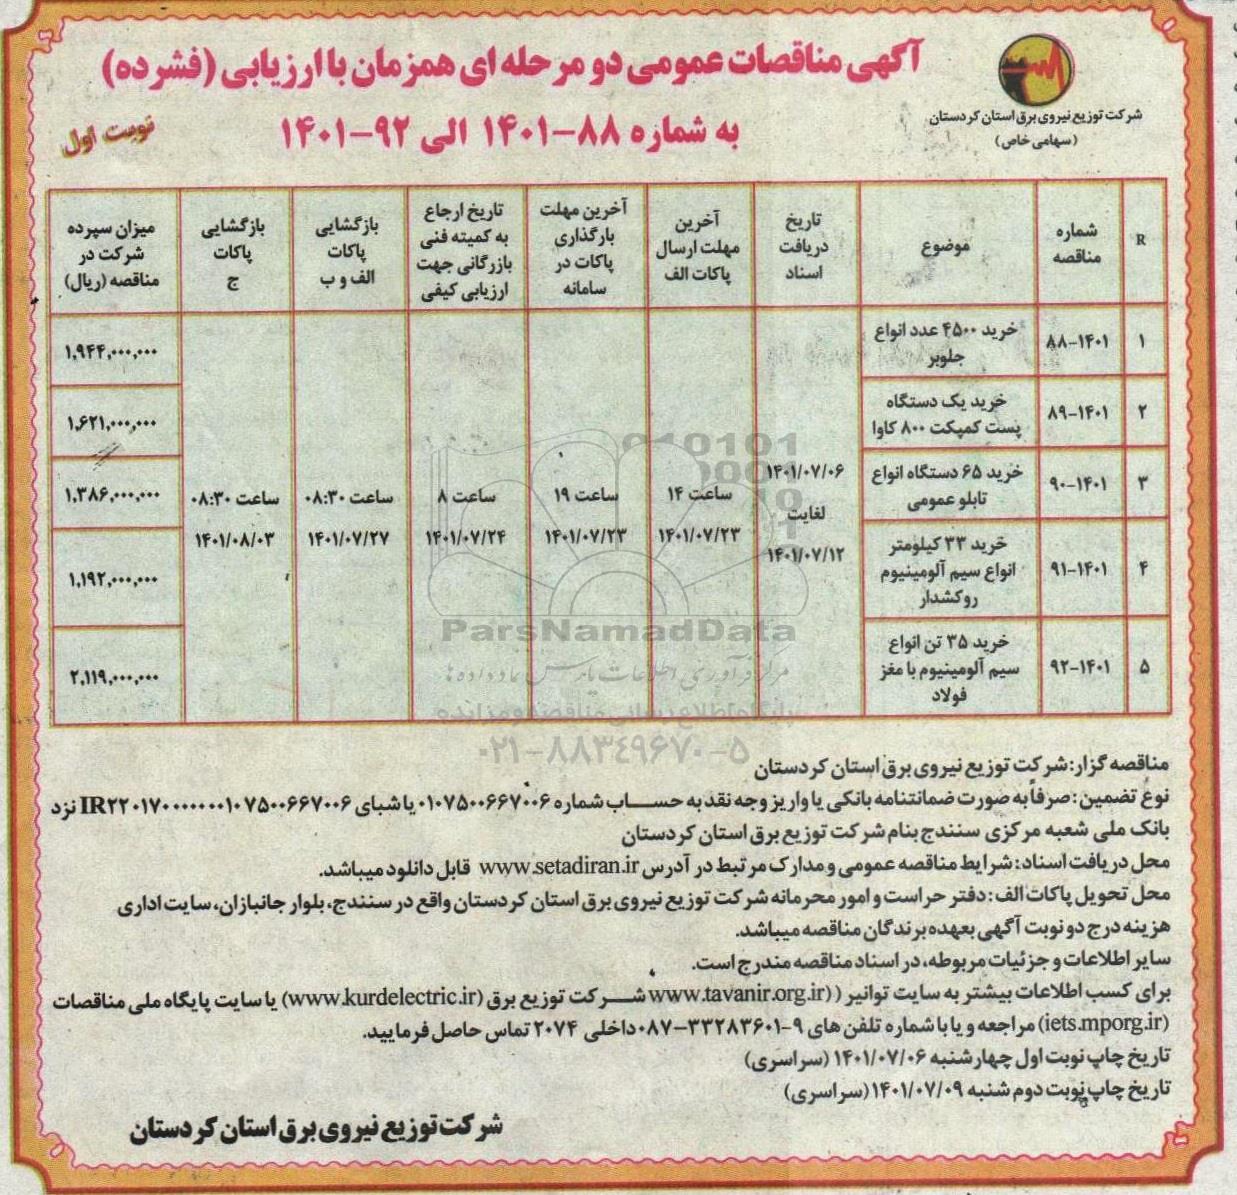 آگهی مناقصات عمومی دو مرحله ای همزمان با ارزیابی (فشرده)
به شماره ۸۸-۱۴۰۱ الی ۹۲-۱۴۰۱
نوبت اول
شرکت توزیع نیروی برق استان کردستان
(سهامی خاص)
R
شماره مناقصه
موضوع
تاریخ دریافت اسناد
آخرین مهلت ارسال پاکات الف
آخرین مهلت بارگذاری پاکات در سامانه
تاریخ ارجاع به کمیته فنی بازرگانی جهت ارزیابی کیفی
بازگشایی پاکات الف و ب
بازگشایی پاکات ج
میزان سپرده شرکت در مناقصه (ریال)
۱
۸۸-۱۴۰۱
خرید ۴۵۰۰ عدد انواع جلوبر
۱,۹۴۴,۰۰۰,۰۰۰
۲
۸۹-۱۴۰۱
خرید یک دستگاه پست کمپکت ۸۰۰ کاوا
۱,۶۲۱,۰۰۰,۰۰۰
۳
۹۰-۱۴۰۱
خرید ۶۵ دستگاه انواع تابلو عمومی
۱,۳۸۶,۰۰۰,۰۰۰
۴
۹۱-۱۴۰۱
خرید ۳۳ کیلومتر انواع سیم آلومینیوم روکشدار
۱,۱۹۲,۰۰۰,۰۰۰
۵
۹۲-۱۴۰۱
خرید ۳۵ تن انواع سیم آلومینیوم با مغز فولاد
۲,۱۱۹,۰۰۰,۰۰۰
۱۴۰۱/۰۷/۰۶
لغایت
۱۴۰۱/۰۷/۱۲
ساعت ۱۴
۱۴۰۱/۰۷/۲۳
ساعت ۱۹
۱۴۰۱/۰۷/۲۳
ساعت ۸
۱۴۰۱/۰۷/۲۴
ساعت ۰۸:۳۰
۱۴۰۱/۰۷/۲۷
ساعت ۰۸:۳۰
۱۴۰۱/۰۸/۰۳
ParsNamadData
مرکز فرآوری اطلاعات پارس نماد داده ها
پایگاه اطلاع رسانی مناقصه و مزایده
۰۲۱-۸۸۳۴۹۶۷۰-۵
مناقصه گزار: شرکت توزیع نیروی برق استان کردستان
نوع تضمین: صرفاً به صورت ضمانتنامه بانکی یا واریز وجه نقد به حساب شماره ۰۱۰۷۵۰۰۶۶۷۰۰۶ یا شبای IR۲۲۰۱۷۰۰۰۰۰۰۰۱۰۷۵۰۰۶۶۷۰۰۶ نزد
بانک ملی شعبه مرکزی سنندج بنام شرکت توزیع برق استان کردستان
محل دریافت اسناد: شرایط مناقصه عمومی و مدارک مرتبط در آدرس www.setadiran.ir قابل دانلود میباشد.
محل تحویل پاکات الف: دفتر حراست و امور محرمانه شرکت توزیع نیروی برق استان کردستان واقع در سنندج، بلوار جانبازان، سایت اداری
هزینه درج دو نوبت آگهی بعهده برندگان مناقصه میباشد.
سایر اطلاعات و جزئیات مربوطه، در اسناد مناقصه مندرج است.
برای کسب اطلاعات بیشتر به سایت توانیر ( (www.tavanir.org.ir شرکت توزیع برق (www.kurdelectric.ir) یا سایت پایگاه ملی مناقصات
(iets.mporg.ir) مراجعه و یا با شماره تلفن های ۹-۰۸۷-۳۳۲۸۳۶۰۱ داخلی ۲۰۷۴ تماس حاصل فرمایید.
تاریخ چاپ نوبت اول چهارشنبه ۱۴۰۱/۰۷/۰۶ (سراسری)
تاریخ چاپ نوبت دوم شنبه ۱۴۰۱/۰۷/۰۹ (سراسری)
شرکت توزیع نیروی برق استان کردستان